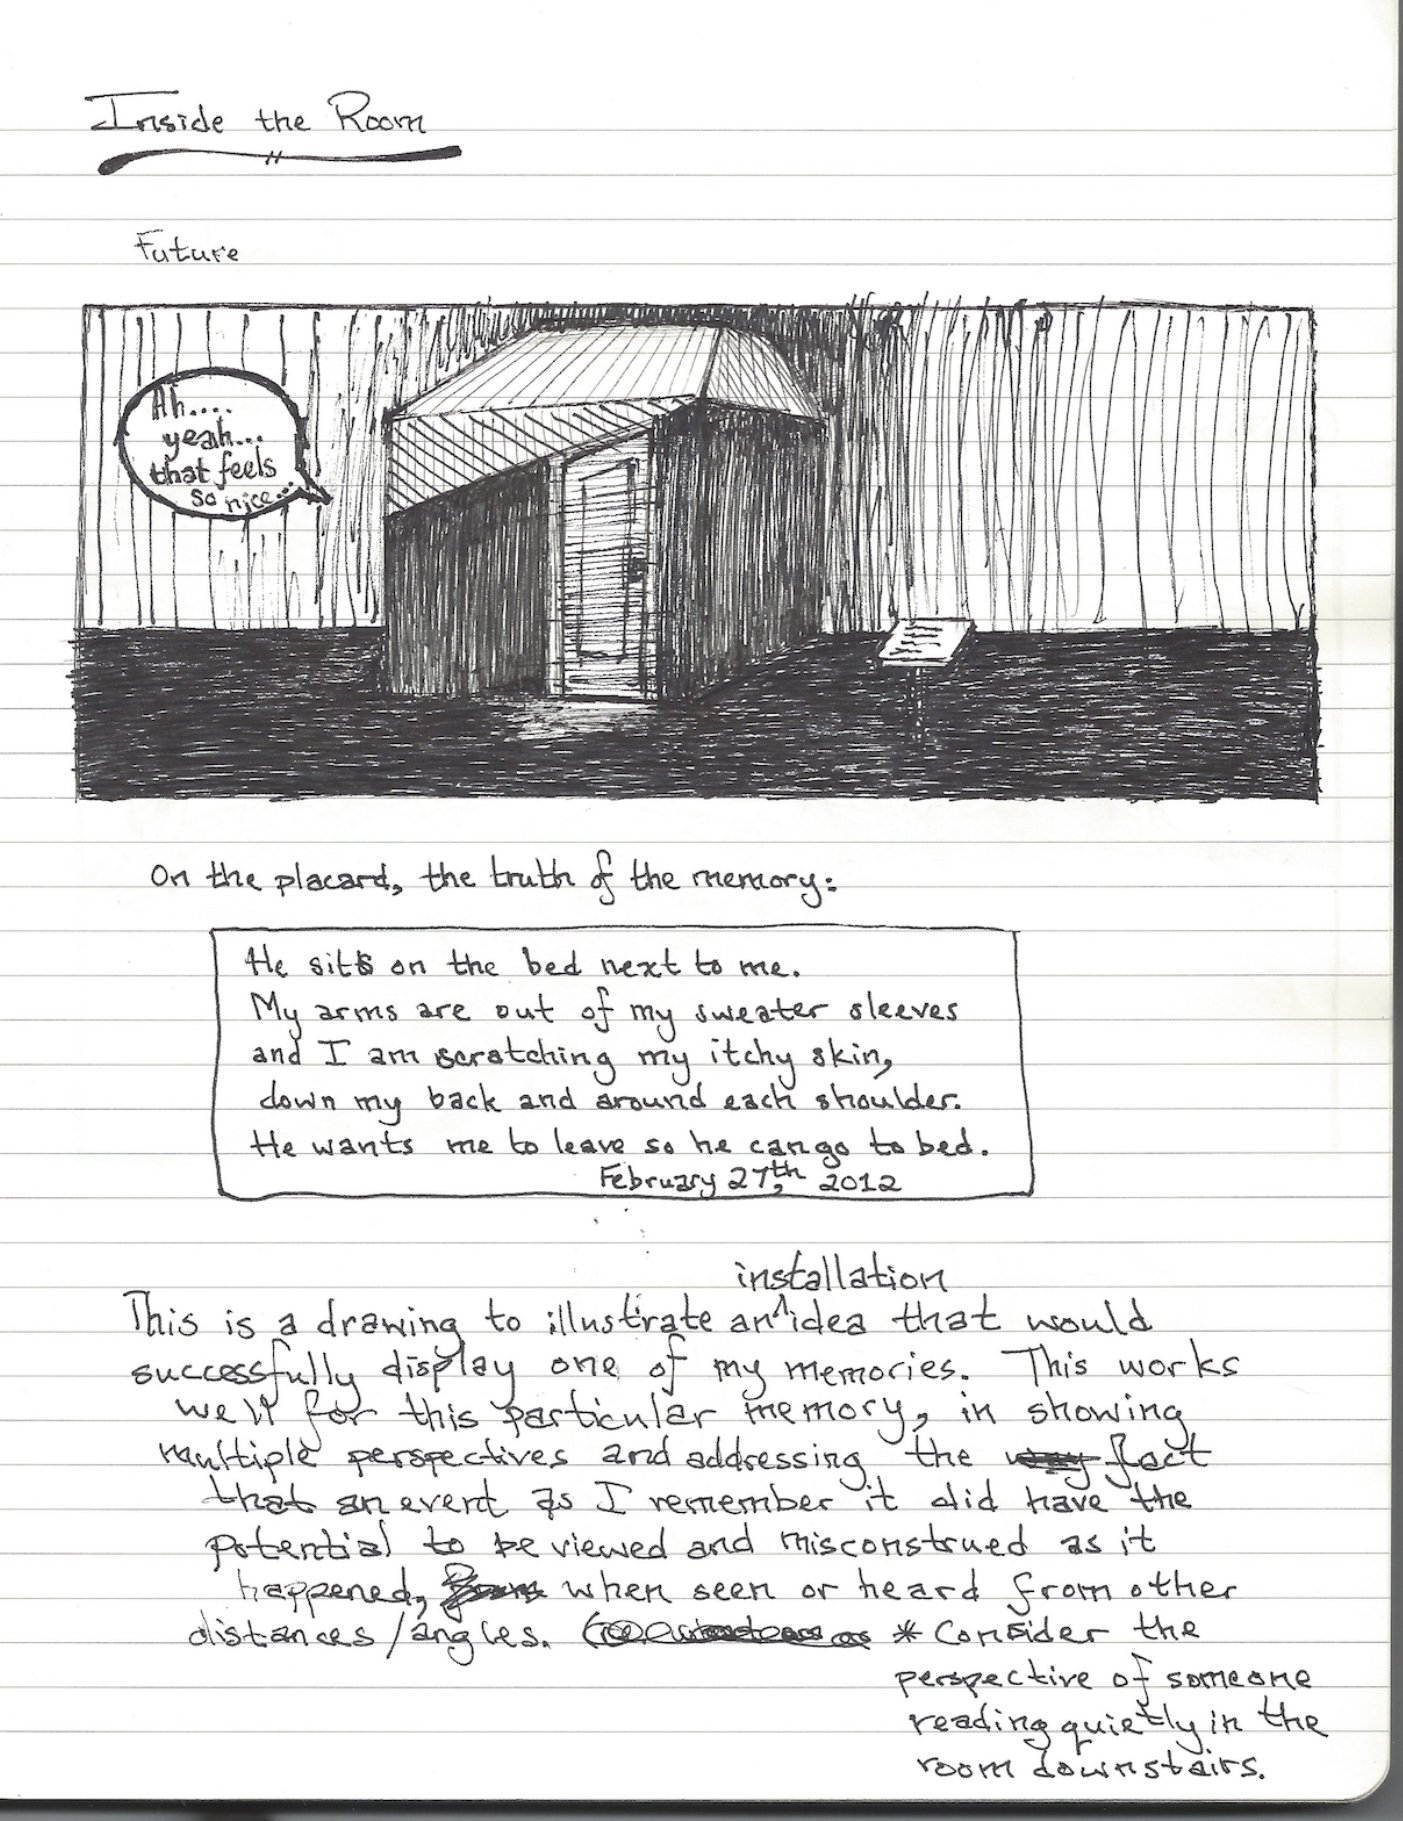 Inside the Room
Future
Ah....
yeah...
that feels
so nice...
On the placard, the truth of the memory:
He sits on the bed next to me.
My arms are out of my sweater sleeves
and I am scratching my itchy skin,
down my back and around each shoulder.
He wants me to leave so he can go to bed.
February 27th, 2012
installation
This is a drawing to illustrate an^idea that would
successfully display one of my memories. This works
well for this particular memory, in showing
multiple perspectives and addressing the fact
that an event as I remember it did have the
potential to be viewed and misconstrued as it
happened, when seen or heard from other
distances/angles. * Consider the
perspective of someone
reading quietly in the
room downstairs.